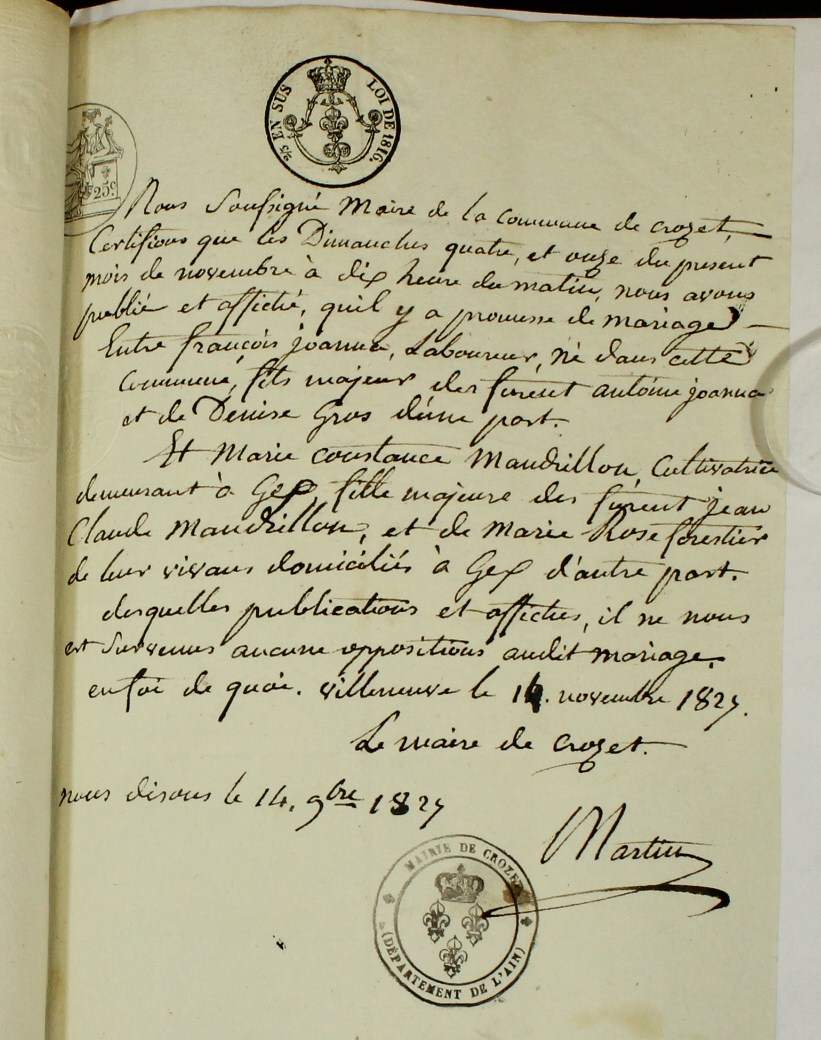 2/5 EN SUS LOI DE 1816.
25c.
Nous Soussigné Maire de la Commune de Crozet,
Certifions que les Dimanches quatre, et onze du présent
mois de novembre à dix heure du matin, nous avons
publié et affiché, quil y a promesse de mariage
Entre françois joanna, Laboureur, né dans cette
Commune, fils majeur des furent antoine joanna
et de Denise Gros d'une part.
Et Marie Constance Mandrillon, Cultivatrice
demeurant à Gex, fille majeure des furent jean
Claude Mandrillon, et de Marie Rose forestier
de leur vivans domiciliés à Gex d'autre part.
desquelles publications et affiches, il ne nous
est Survenus aucune oppositions audit mariage.
en foi de quoi. villeneuve le 14. novembre 1827.
Le maire de Crozet.
nous disons le 14. 9bre 1827
Martin
MAIRIE DE CROZET
(DÉPARTEMENT DE L'AIN)